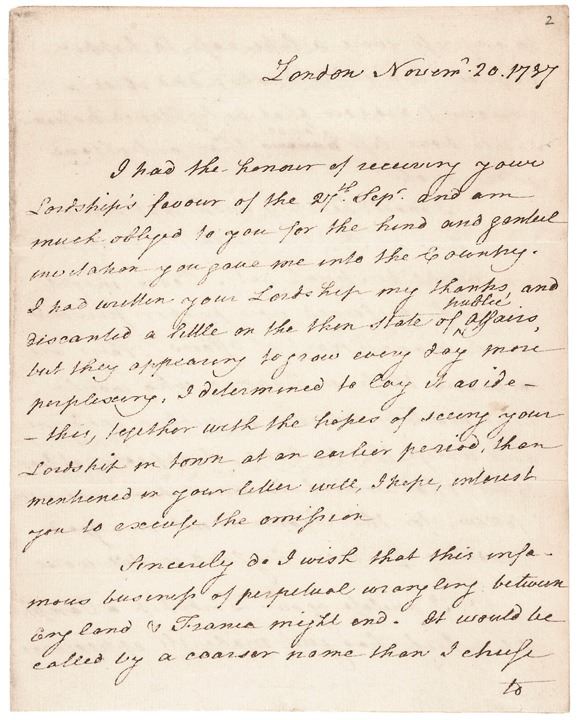 2
London Novemr. 20. 1787
I had the honour of receiving your
Lordship's favour of the 27th. Sepr. and am
much obliged to you for the kind and genteel
invitation you gave me into the Country.
I had written your Lordship my thanks, and
discanted a little on the then state of public Affairs,
but they appearing to grow every day more
perplexing, I determined to lay it aside –
– this, together with the hopes of seeing your
Lordship in town at an earlier period, than
mentioned in your letter will, I hope, interest
you to excuse the omission
Sincerely do I wish that this infa-
mous business of perpetual wrangling between
England & France might end. It would be
called by a coarser name than I chuse
to